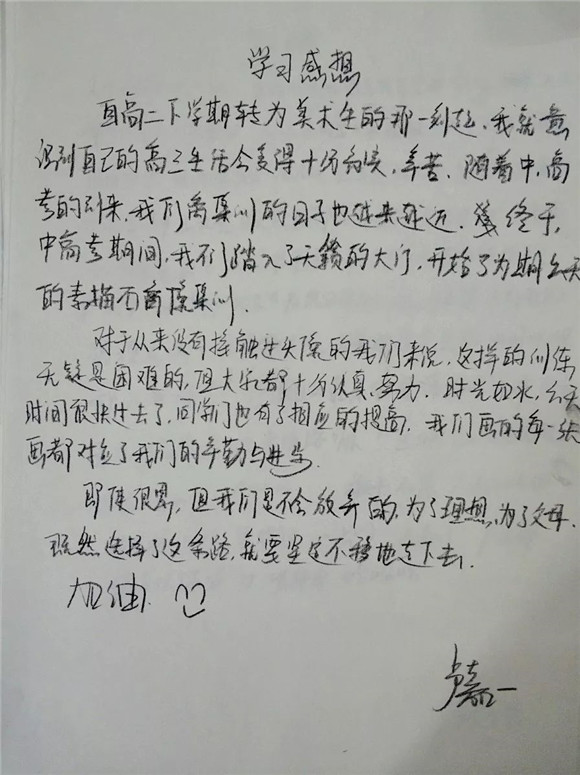 学习感想
自高二下学期转为美术生的那一刻起,我就意
识到自己的高三生活会变得十分充实,辛苦.随着中,高
考的到来,我们离集训的日子也越来越近.终于,
中高考期间,我们踏入了天籁的大门,开始了为期六天
的素描石膏像集训.
对于从来没有接触过头像的我们来说,这样的训练
无疑是困难的,但大家都十分认真,努力.时光如水,六天
时间很快过去了,同学们也有了相应的提高,我们画的每一张
画都对应了我们的辛勤与进步.
即使很累,但我们是不会放弃的,为了理想,为了父母.
既然选择了这条路,就要坚定不移地走下去.
加油.
嘉一